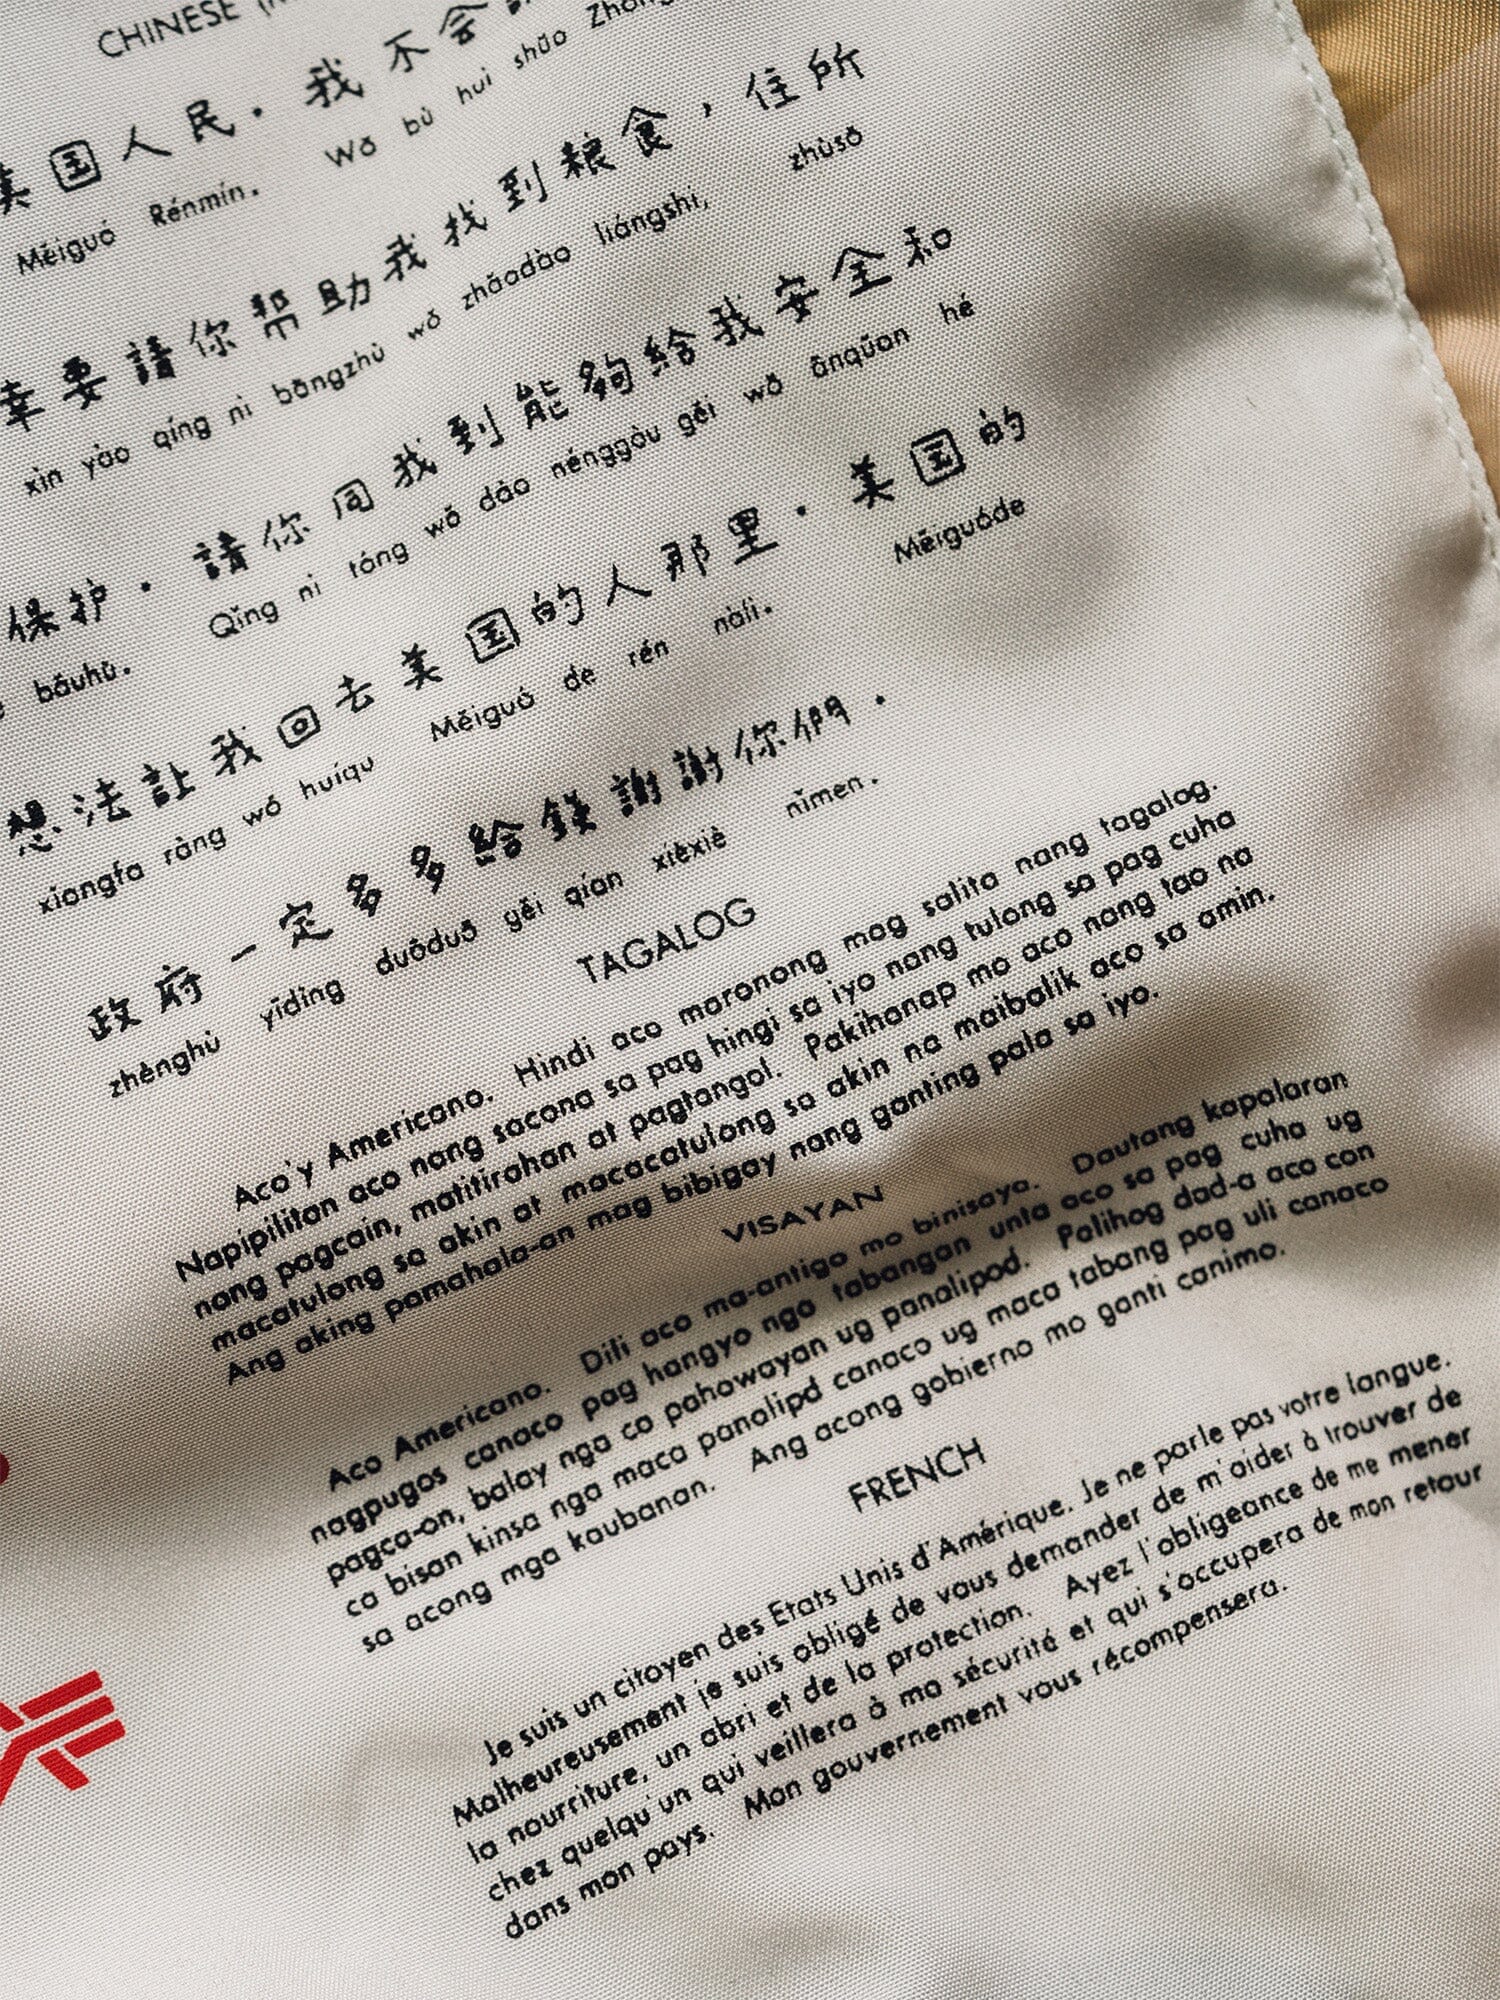 CHINESE
美国人民. 我不会
Měiguó Rénmín. Wǒ bù huì shūo
幸要請你帮助我找到粮食, 住所
xìn yào qíng nì bāngzhù wǒ zhǎodào liángshí, zhùsǒ
保护. 請你同我到能夠給我安全和
bǎuhù. Qǐng nì tóng wǒ dào nénggòu gěi wǒ ānqúan hé
想法让我回去美国的人那里. 美国的
xiangfa ràng wǒ huíqu Měiguó de rén nàli. Měiguóde
政府一定多多給錢謝謝你們.
zhènghù yīdìng duōduō gěi qían xièxiè nǐmen.
TAGALOG
Aco'y Americano. Hindi aco maronong mag salita nang tagalog.
Napipilitan aco nang sacona sa pag hingi sa iyo nang tulong sa pag cuha
nang pagcain, matitirahan at pagtangol. Pakihanap mo aco nang tao na
macatulong sa akin at macacatulong sa akin na maibalik aco sa amin.
Ang aking pamahala-an mag bibigay nang ganting pala sa iyo.
VISAYAN
Aco Americano. Dili aco ma-antigo mo binisaya. Dautang kapalaran
nagpugos canaco pag hangyo nga tabangan unta aco sa pag cuha ug
pagca-on, balay nga ca pahowayan ug panalipod. Palihog dad-a aco con
ca bisan kinsa nga maca panalipd canaco ug maca tabang pag uli canaco
sa acong mga kaubanan. Ang acong gobierno mo ganti canimo.
FRENCH
Je suis un citoyen des Etats Unis d'Amérique. Je ne parle pas votre langue.
Malheureusement je suis obligé de vous demander de m'aider à trouver de
la nourriture, un abri et de la protection. Ayez l'obligeance de me mener
chez quelqu'un qui veillera à ma sécurité et qui s'occupera de mon retour
dans mon pays. Mon gouvernement vous récompensera.